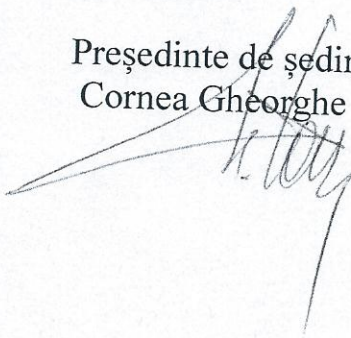 Președinte de ședin
Cornea Gheorghe